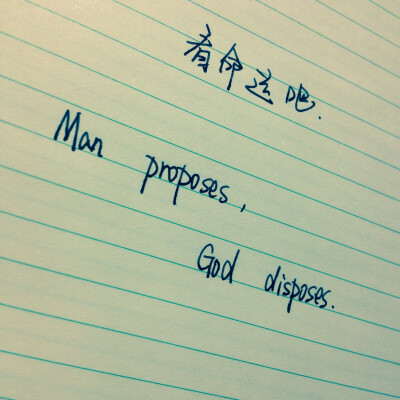 看命运吧.
Man proposes,
God disposes.